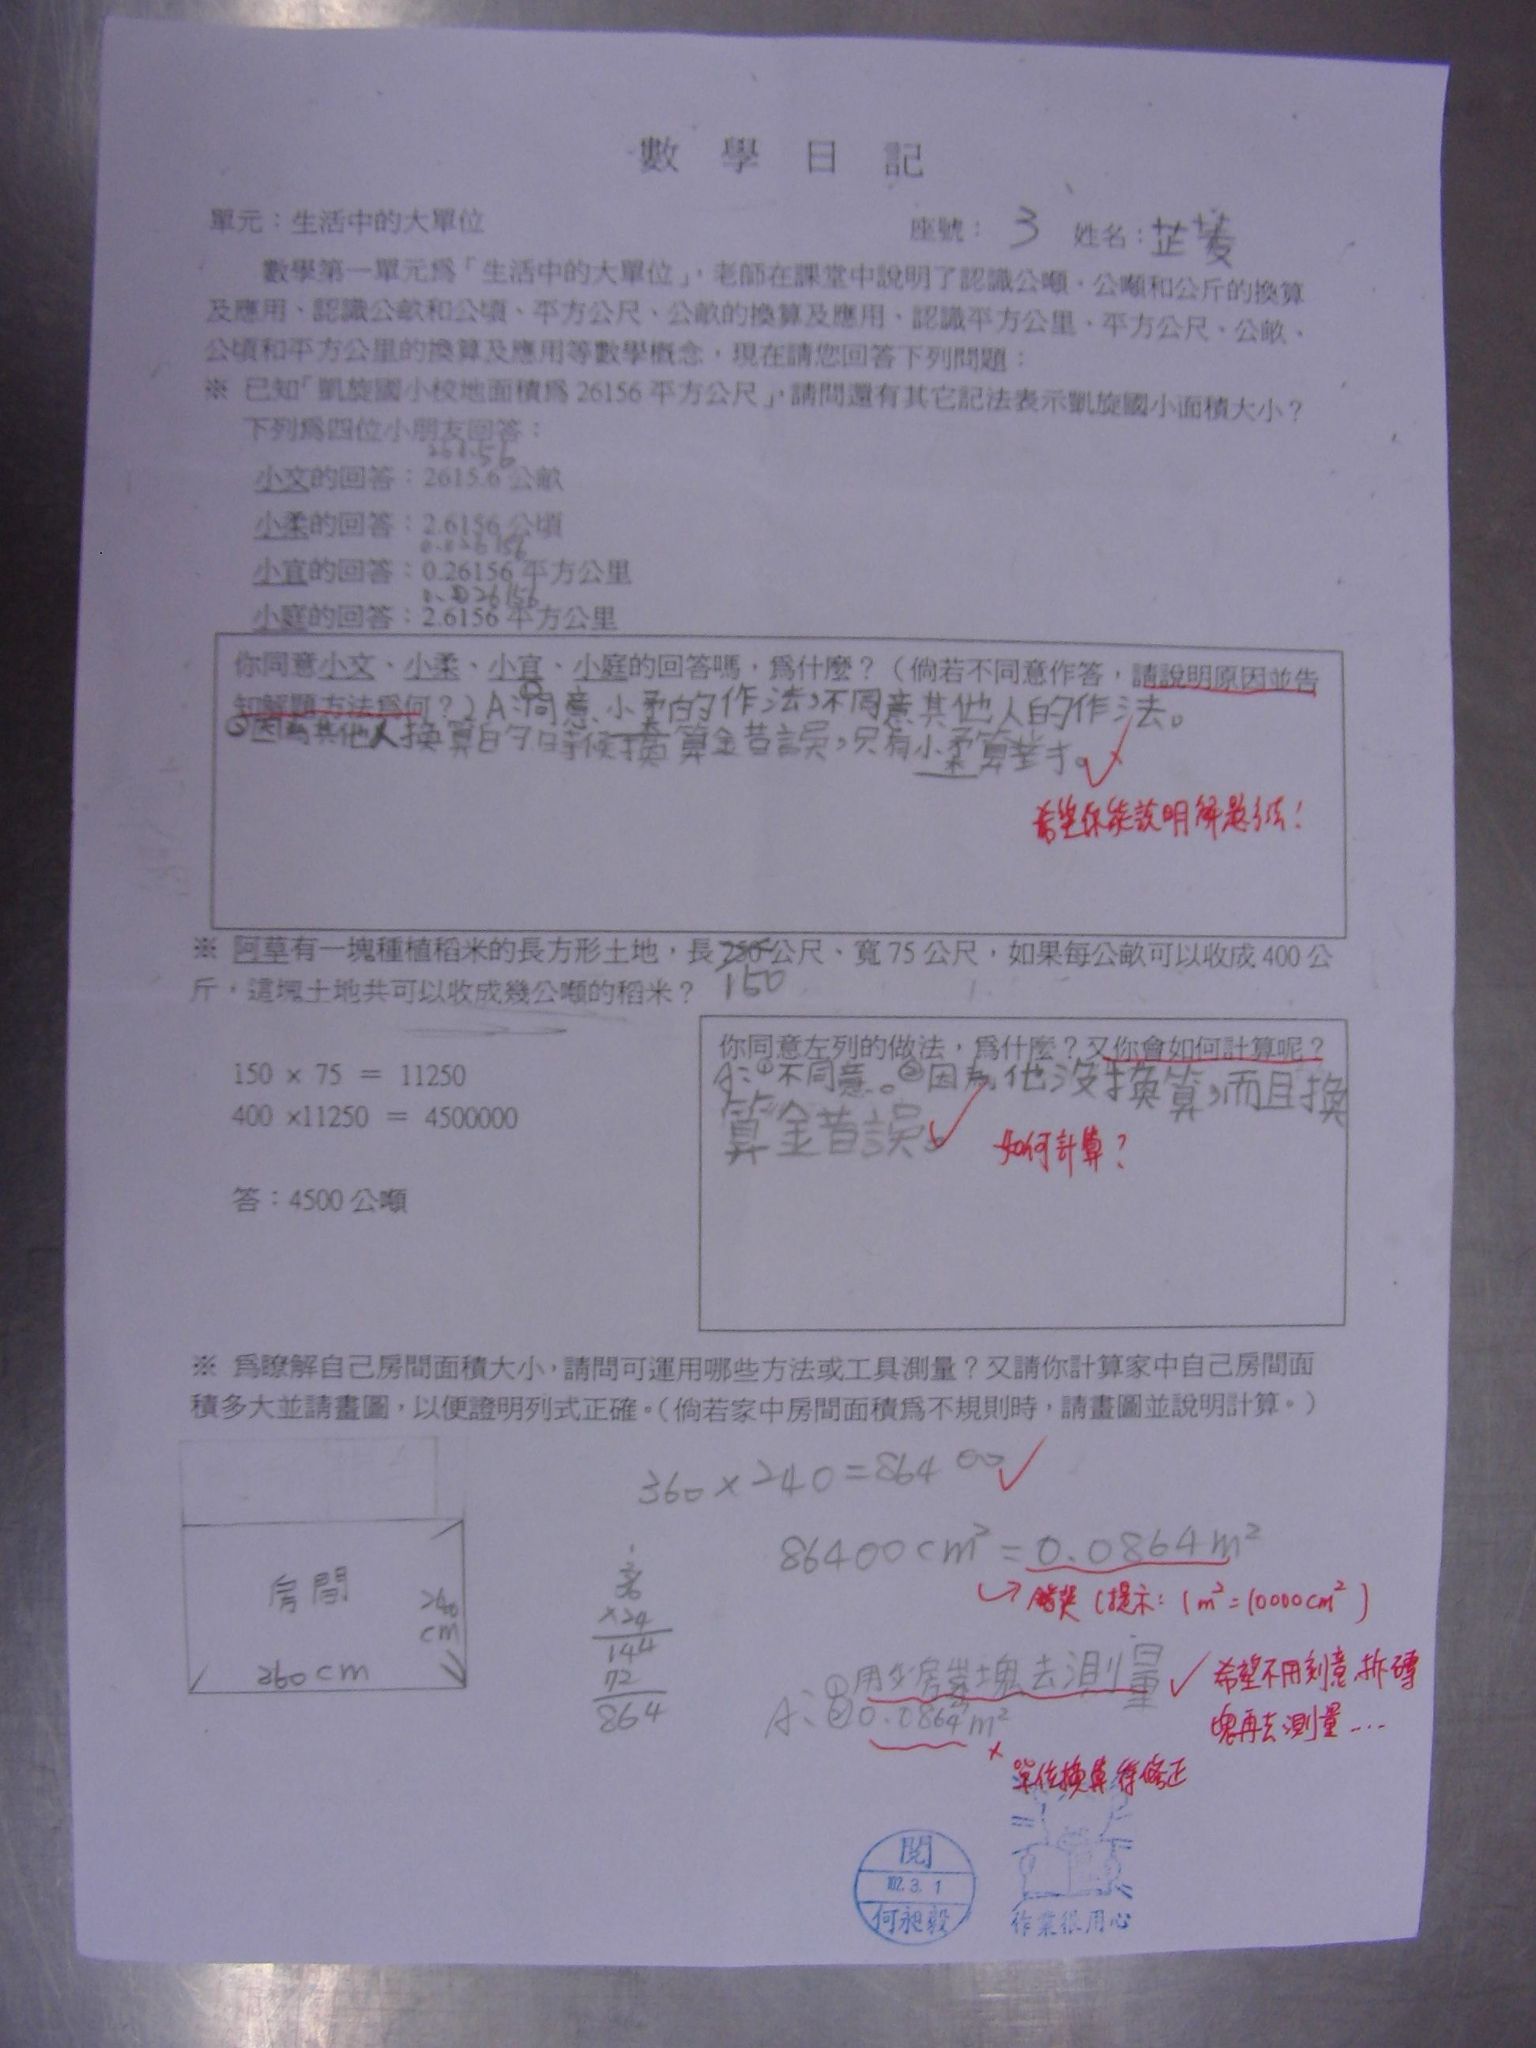 數學日記
單元：生活中的大單位
座號：3 姓名：芷菱
數學第一單元為「生活中的大單位」，老師在課堂中說明了認識公噸、公噸和公斤的換算
及應用、認識公畝和公頃、平方公尺、公畝的換算及應用、認識平方公里、平方公尺、公畝、
公頃和平方公里的換算及應用等數學概念，現在請您回答下列問題：
※ 已知「凱旋國小校地面積為 26156 平方公尺」，請問還有其它記法表示凱旋國小面積大小？
下列為四位小朋友回答：
261.56
小文的回答：2615.6 公畝
小柔的回答：2.6156 公頃
0.026156
小宜的回答：0.26156 平方公里
0.026156
小庭的回答：2.6156 平方公里
你同意小文、小柔、小宜、小庭的回答嗎，為什麼？（倘若不同意作答，請說明原因並告
知解題方法為何？）A：①同意小柔的作法，不同意其他人的作法。
②因為其他人換算的時候換算錯誤，只有小柔算對。
希望你能說明解題方法！
※ 阿草有一塊種植稻米的長方形土地，長 250 公尺、寬 75 公尺，如果每公畝可以收成 400 公
150
斤，這塊土地共可以收成幾公噸的稻米？
150 × 75 = 11250
400 ×11250 = 4500000
答：4500 公噸
你同意左列的做法，為什麼？又你會如何計算呢？
A：①不同意。②因為他沒換算，而且換
算錯誤。
如何計算？
※ 為瞭解自己房間面積大小，請問可運用哪些方法或工具測量？又請你計算家中自己房間面
積多大並請畫圖，以便證明列式正確。（倘若家中房間面積為不規則時，請畫圖並說明計算。）
360×240=86400
86400cm²=0.0864m²
錯誤（提示：1m²=10000cm²）
房間
240
cm
360cm
36
×24
144
72
864
A：①用磚塊去測量
②0.0864m²
希望不用刻意拆磚
塊再去測量...
單位換算待修正
閱
102.3.1
何昶毅
作業很用心